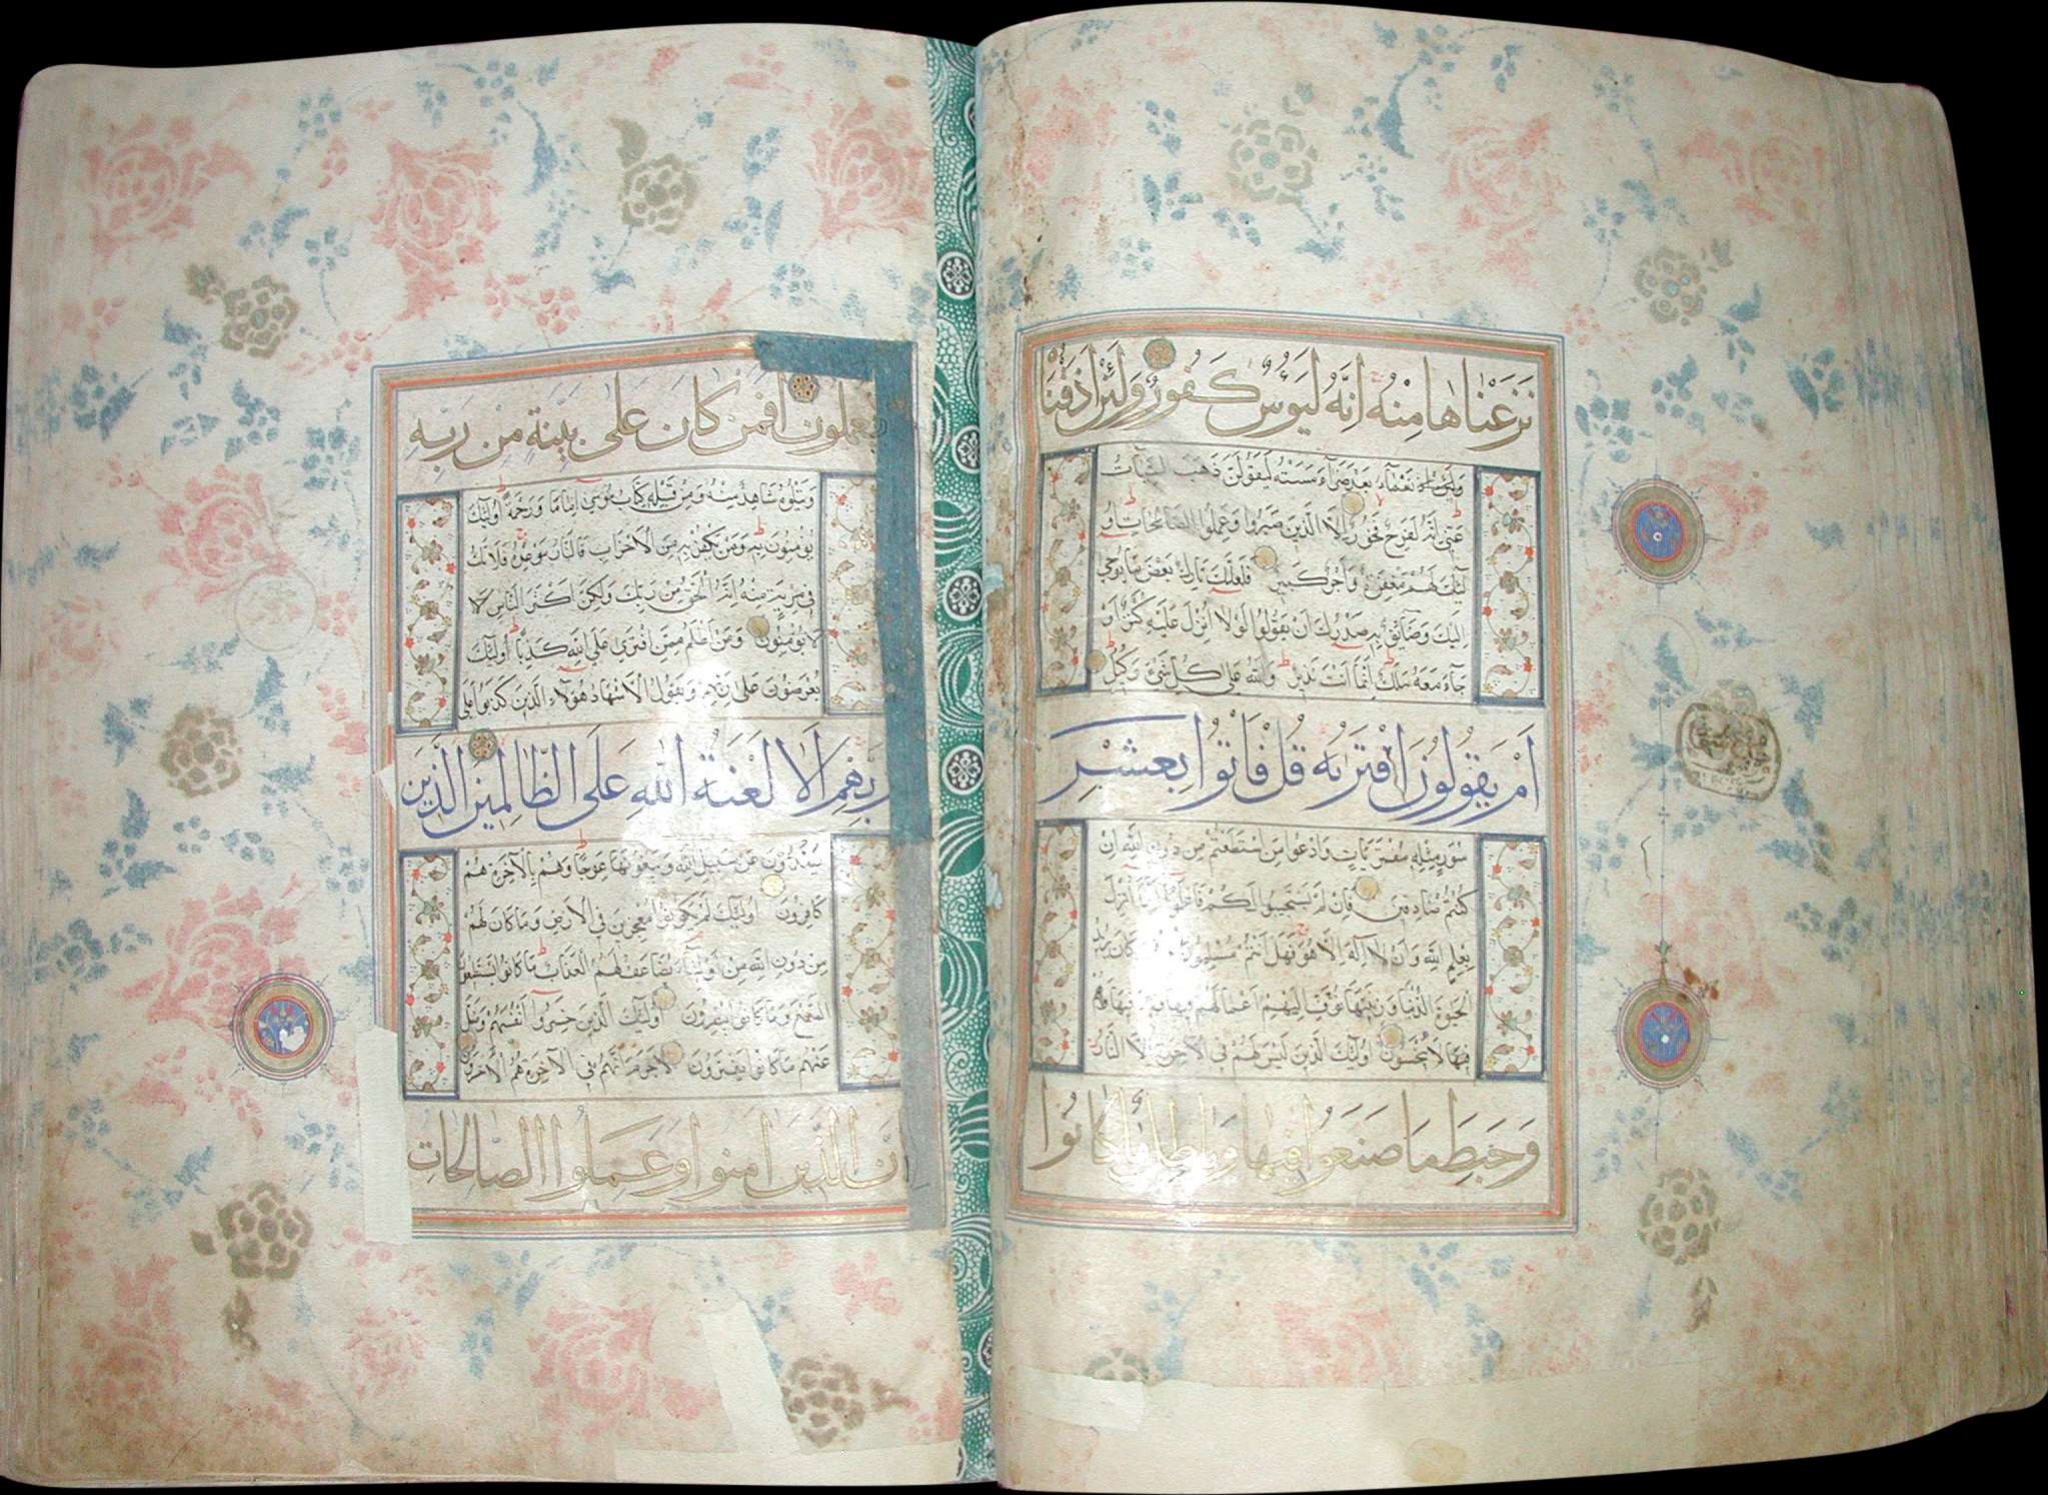 نَزَعْنَاهَا مِنْهُ اِنَّهُ لَيَؤُسٌ كَفُورٌ وَلَئِنْ اَذَقْنَا
نَعْمَآءَ بَعْدَ ضَرَّآءَ مَسَّتْهُ لَيَقُولَنَّ ذَهَبَ السَّيِّآتُ
عَنّى اِنَّهُ لَفَرِحٌ فَخُورٌ اِلَّا الَّذينَ صَبَرُوا وَعَمِلُوا الصَّالِحَاتِ اُو
لَئِكَ لَهُمْ مَغْفِرَةٌ وَاَجْرٌ كَبيرٌ فَلَعَلَّكَ تَارِكٌ بَعْضَ مَا يُوحٰي
اِلَيْكَ وَضَآئِقٌ بِهِ صَدْرُكَ اَنْ يَقُولُوا لَوْلَا اُنْزِلَ عَلَيْهِ كَنْزٌ اَوْ
جَآءَ مَعَهُ مَلَكٌ اِنَّمَا اَنْتَ نَذيرٌ وَاللّٰهُ عَلٰي كُلِّ شَيْءٍ وَكيلٌ
اَمْ يَقُولُونَ افْتَرٰيهُ قُلْ فَاْتُوا بِعَشْرِ
سُوَرٍ مِثْلِهِ مُفْتَرَيَاتٍ وَادْعُوا مَنِ اسْتَطَعْتُمْ مِنْ دُونِ اللّٰهِ اِنْ
كُنْتُمْ صَادِقينَ فَاِنْ لَمْ يَسْتَجيبُوا لَكُمْ فَاعْلَمُوا اَنَّمَا اُنْزِلَ
بِعِلْمِ اللّٰهِ وَاَنْ لَا اِلٰهَ اِلَّا هُوَ فَهَلْ اَنْتُمْ مُسْلِمُونَ كَانَ يُريدُ
الْحَيٰوةَ الدُّنْيَا وَزينَتَهَا نُوَفِّ اِلَيْهِمْ اَعْمَالَهُمْ فيهَا وَهُمْ
فيهَا لَا يُبْخَسُونَ اُولٰئِكَ الَّذينَ لَيْسَ لَهُمْ فِي الْآخِرَةِ اِلَّا النَّارُ
وَحَبِطَ مَا صَنَعُوا فيهَا وَبَاطِلٌ مَا كَانُوا
يَعْمَلُونَ اَفَمَنْ كَانَ عَلٰى بَيِّنَةٍ مِنْ رَبِّهِ
وَيَتْلُوهُ شَاهِدٌ مِنْهُ وَمِنْ قَبْلِهِ كِتَابُ مُوسٰي اِمَامًا وَرَحْمَةً اُولٰئِكَ
يُؤْمِنُونَ بِهِ وَمَنْ يَكْفُرْ بِهِ مِنَ الْاَحْزَابِ فَالنَّارُ مَوْعِدُهُ فَلَا تَكُ
في مِرْيَةٍ مِنْهُ اِنَّهُ الْحَقُّ مِنْ رَبِّكَ وَلٰكِنَّ اَكْثَرَ النَّاسِ لَا
لَا يُؤْمِنُونَ وَمَنْ اَظْلَمُ مِمَّنِ افْتَرٰي عَلَي اللّٰهِ كَذِبًا اُولٰئِكَ
يُعْرَضُونَ عَلٰى رَبِّهِمْ وَيَقُولُ الْاَشْهَادُ هٰؤُلَاءِ الَّذينَ كَذَبُوا عَلٰي
رَبِّهِمْ اَلَا لَعْنَةُ اللّٰهِ عَلَى الظَّالِمينَ الَّذينَ
يَصُدُّونَ عَنْ سَبيلِ اللّٰهِ وَيَبْغُونَهَا عِوَجًا وَهُمْ بِالْآخِرَةِ هُمْ
كَافِرُونَ اُولٰئِكَ لَمْ يَكُونُوا مُعْجِزينَ فِي الْاَرْضِ وَمَا كَانَ لَهُمْ
مِنْ دُونِ اللّٰهِ مِنْ اَوْلِيَآءَ يُضَاعَفُ لَهُمُ الْعَذَابُ مَا كَانُوا يَسْتَطيعُونَ
السَّمْعَ وَمَا كَانُوا يُبْصِرُونَ اُولٰئِكَ الَّذينَ خَسِرُوا اَنْفُسَهُمْ وَضَلَّ
عَنْهُمْ مَا كَانُوا يَفْتَرُونَ لَا جَرَمَ اَنَّهُمْ فِي الْآخِرَةِ هُمُ الْاَخْسَرُونَ
اِنَّ الَّذينَ اٰمَنُوا وَعَمِلُوا الصَّالِحَاتِ